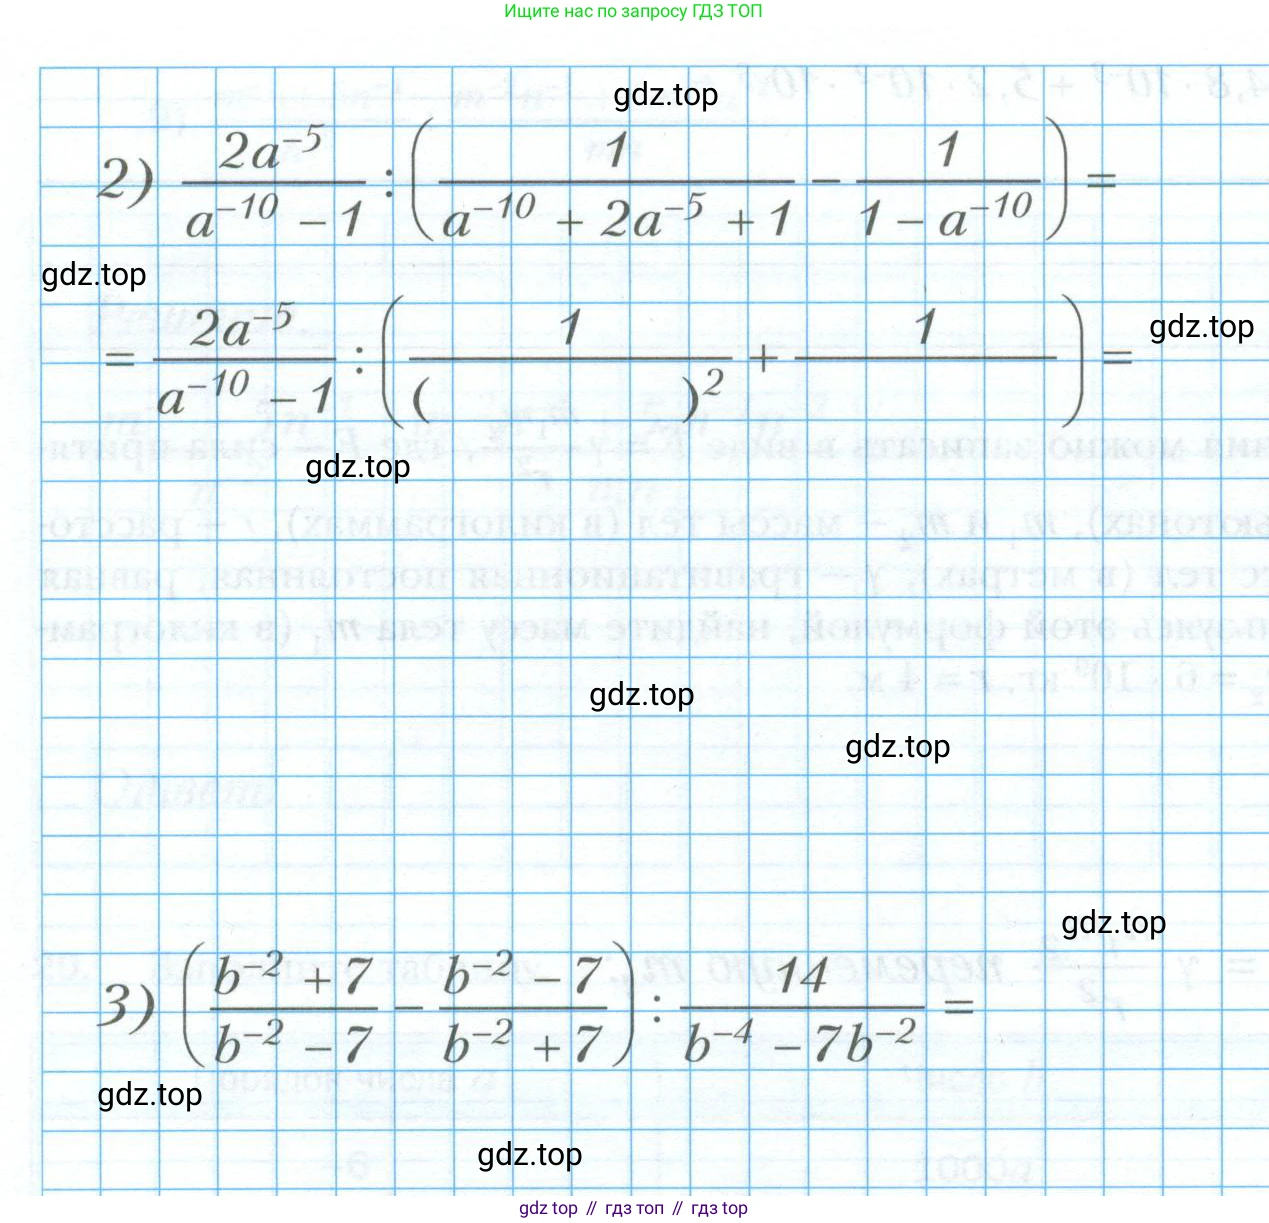 Ищите нас по запросу ГДЗ ТОП
gdz.top
2) \frac{2a^{-5}}{a^{-10} - 1} : \left( \frac{1}{a^{-10} + 2a^{-5} + 1} - \frac{1}{1 - a^{-10}} \right) =
gdz.top
= \frac{2a^{-5}}{a^{-10} - 1} : \left( \frac{1}{( )^2} + \frac{1}{ } \right) =
gdz.top
gdz.top
gdz.top
gdz.top
gdz.top
3) \left( \frac{b^{-2} + 7}{b^{-2} - 7} - \frac{b^{-2} - 7}{b^{-2} + 7} \right) : \frac{14}{b^{-4} - 7b^{-2}} =
gdz.top
gdz.top
gdz top // гдз топ // гдз top